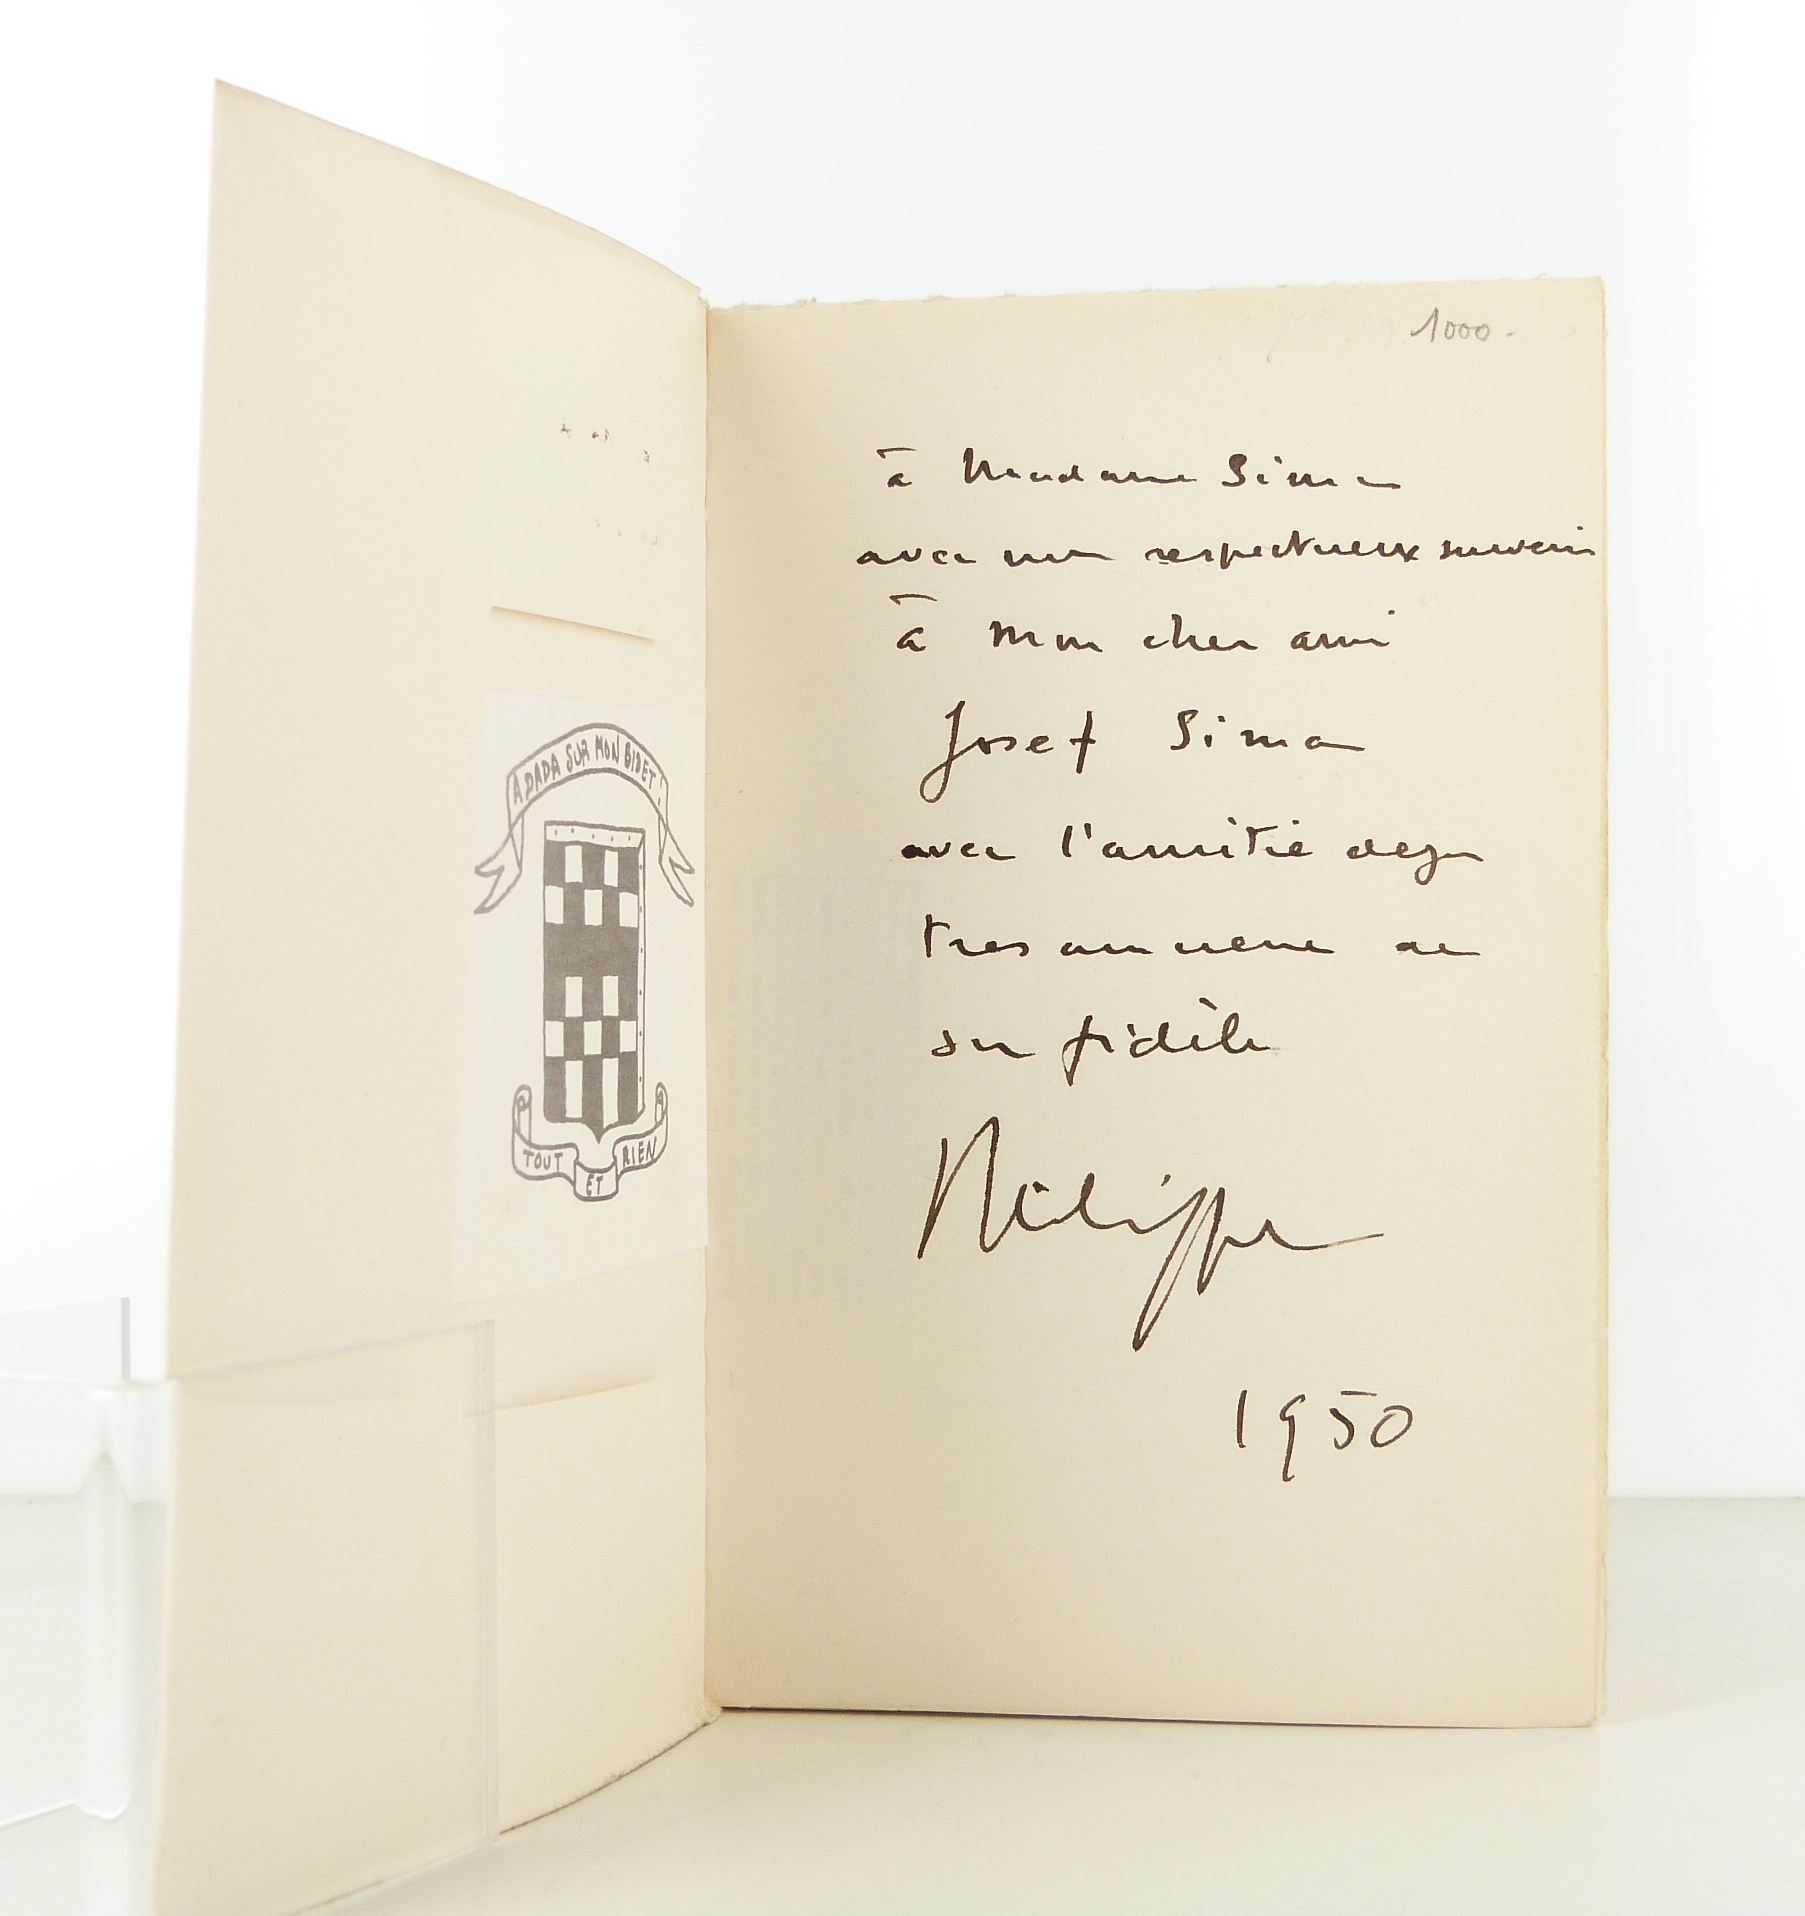 A DADA SUR MON BIDET !
TOUT ET RIEN
1000.-
à Madame Sima
avec un respectueux souvenir
à mon cher ami
Josef Sima
avec l'amitié deja
tres ancienne de
son fidèle
Philippe
1950